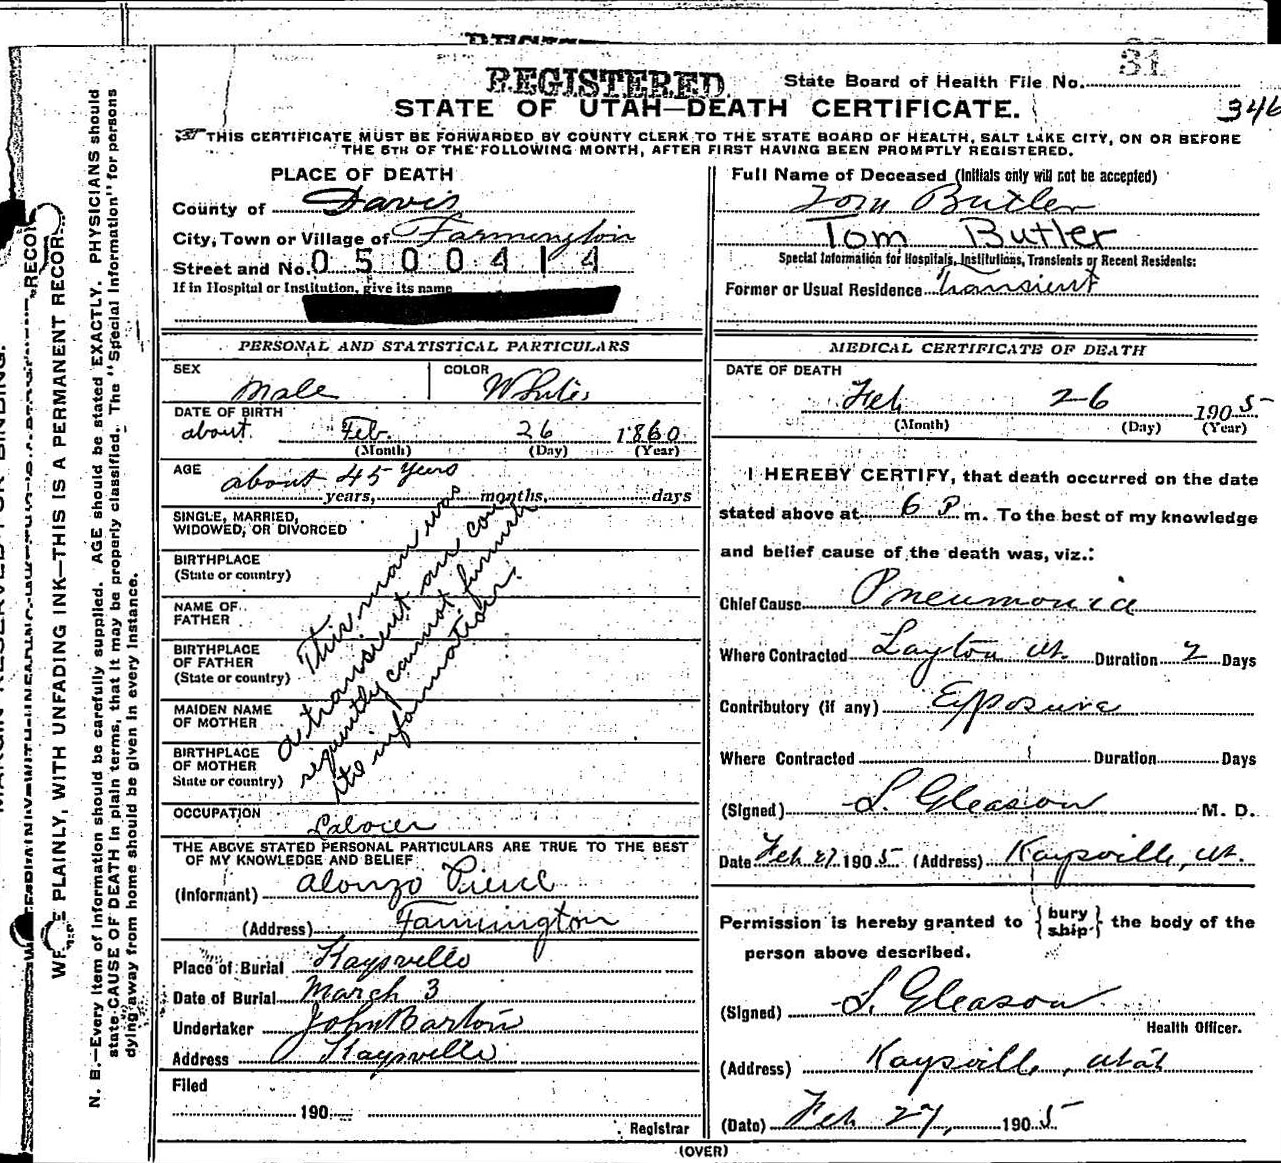 REGISTERED
State Board of Health File No. 31
STATE OF UTAH—DEATH CERTIFICATE.
346
THIS CERTIFICATE MUST BE FORWARDED BY COUNTY CLERK TO THE STATE BOARD OF HEALTH, SALT LAKE CITY, ON OR BEFORE
THE 5TH OF THE FOLLOWING MONTH, AFTER FIRST HAVING BEEN PROMPTLY REGISTERED.
PLACE OF DEATH
County of Davis
City, Town or Village of Farmington
Street and No. 0500414
If in Hospital or Institution, give its name
Full Name of Deceased (Initials only will not be accepted)
Tom Butler
Tom Butler
Special Information for Hospitals, Institutions, Transients or Recent Residents:
Former or Usual Residence Transient
PERSONAL AND STATISTICAL PARTICULARS
SEX
Male
COLOR
White
DATE OF BIRTH
about Feb. 26 1860
(Month) (Day) (Year)
AGE
about 45 years
years, months, days
SINGLE, MARRIED,
WIDOWED, OR DIVORCED
BIRTHPLACE
(State or country)
NAME OF
FATHER
BIRTHPLACE
OF FATHER
(State or country)
MAIDEN NAME
OF MOTHER
BIRTHPLACE
OF MOTHER
State or country)
This man was
a transient an con
sequently cannot furnish
the information.
OCCUPATION
Laborer
THE ABOVE STATED PERSONAL PARTICULARS ARE TRUE TO THE BEST
OF MY KNOWLEDGE AND BELIEF
(Informant) Alonzo Pierce
(Address) Farmington
Place of Burial Kaysville
Date of Burial March 3
Undertaker John Barton
Address Kaysville
Filed
190
Registrar
MEDICAL CERTIFICATE OF DEATH
DATE OF DEATH
Feb 26 1905
(Month) (Day) (Year)
I HEREBY CERTIFY, that death occurred on the date
stated above at 6 P m. To the best of my knowledge
and belief cause of the death was, viz.:
Chief Cause Pneumonia
Where Contracted Layton Ut. Duration 2 Days
Contributory (if any) Exposure
Where Contracted Duration Days
(Signed) S. Gleason M. D.
Date Feb 27 1905 (Address) Kaysville, Ut.
Permission is hereby granted to {bury ship} the body of the
person above described.
(Signed) S. Gleason
Health Officer.
(Address) Kaysville, Utah
(Date) Feb 27, 1905
(OVER)
WRITE PLAINLY, WITH UNFADING INK—THIS IS A PERMANENT RECORD
N. B.—Every item of information should be carefully supplied. AGE should be stated EXACTLY. PHYSICIANS should
state CAUSE OF DEATH in plain terms, that it may be properly classified. The "Special Information" for persons
dying away from home should be given in every instance.
MARGIN RESERVED FOR BINDING.